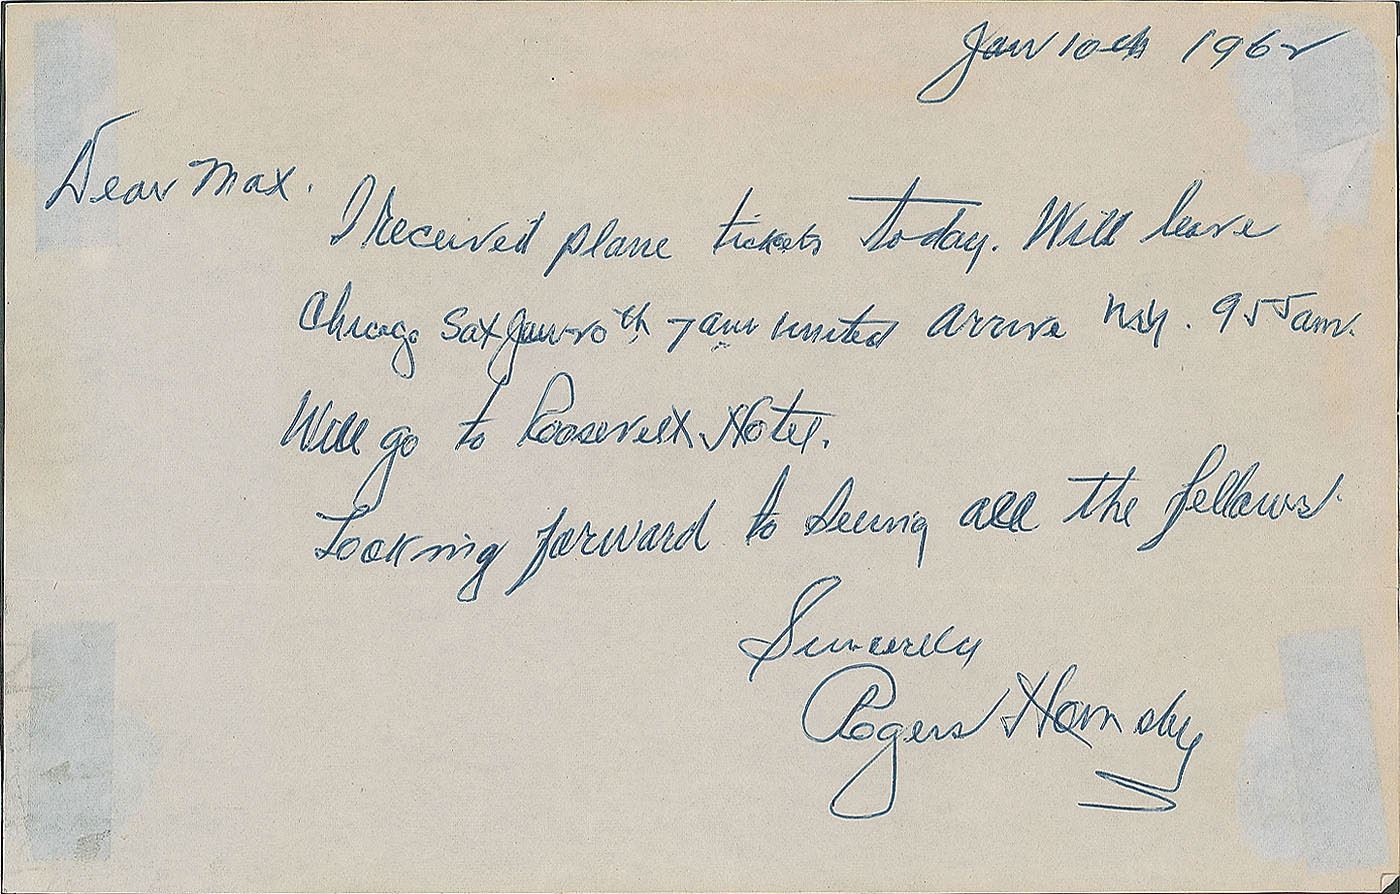 Jan 10th 1962
Dear Max.
I received plane tickets today. Will leave
Chicago Sat Jan 20th 7 am united arrive N.Y. 9 55 am.
Will go to Roosevelt Hotel.
Looking forward to seeing all the fellows.
Sincerely
Rogers Hornsby